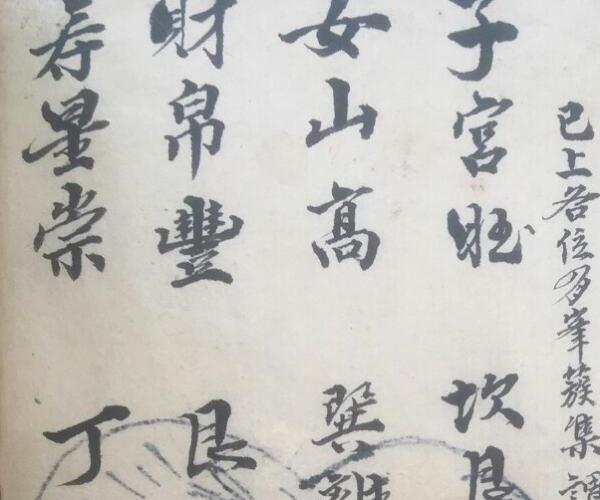 已上各位有峯簇集謂
子宮旺 坎艮
女山高 巽離
財帛豐 艮
寿星崇 丁